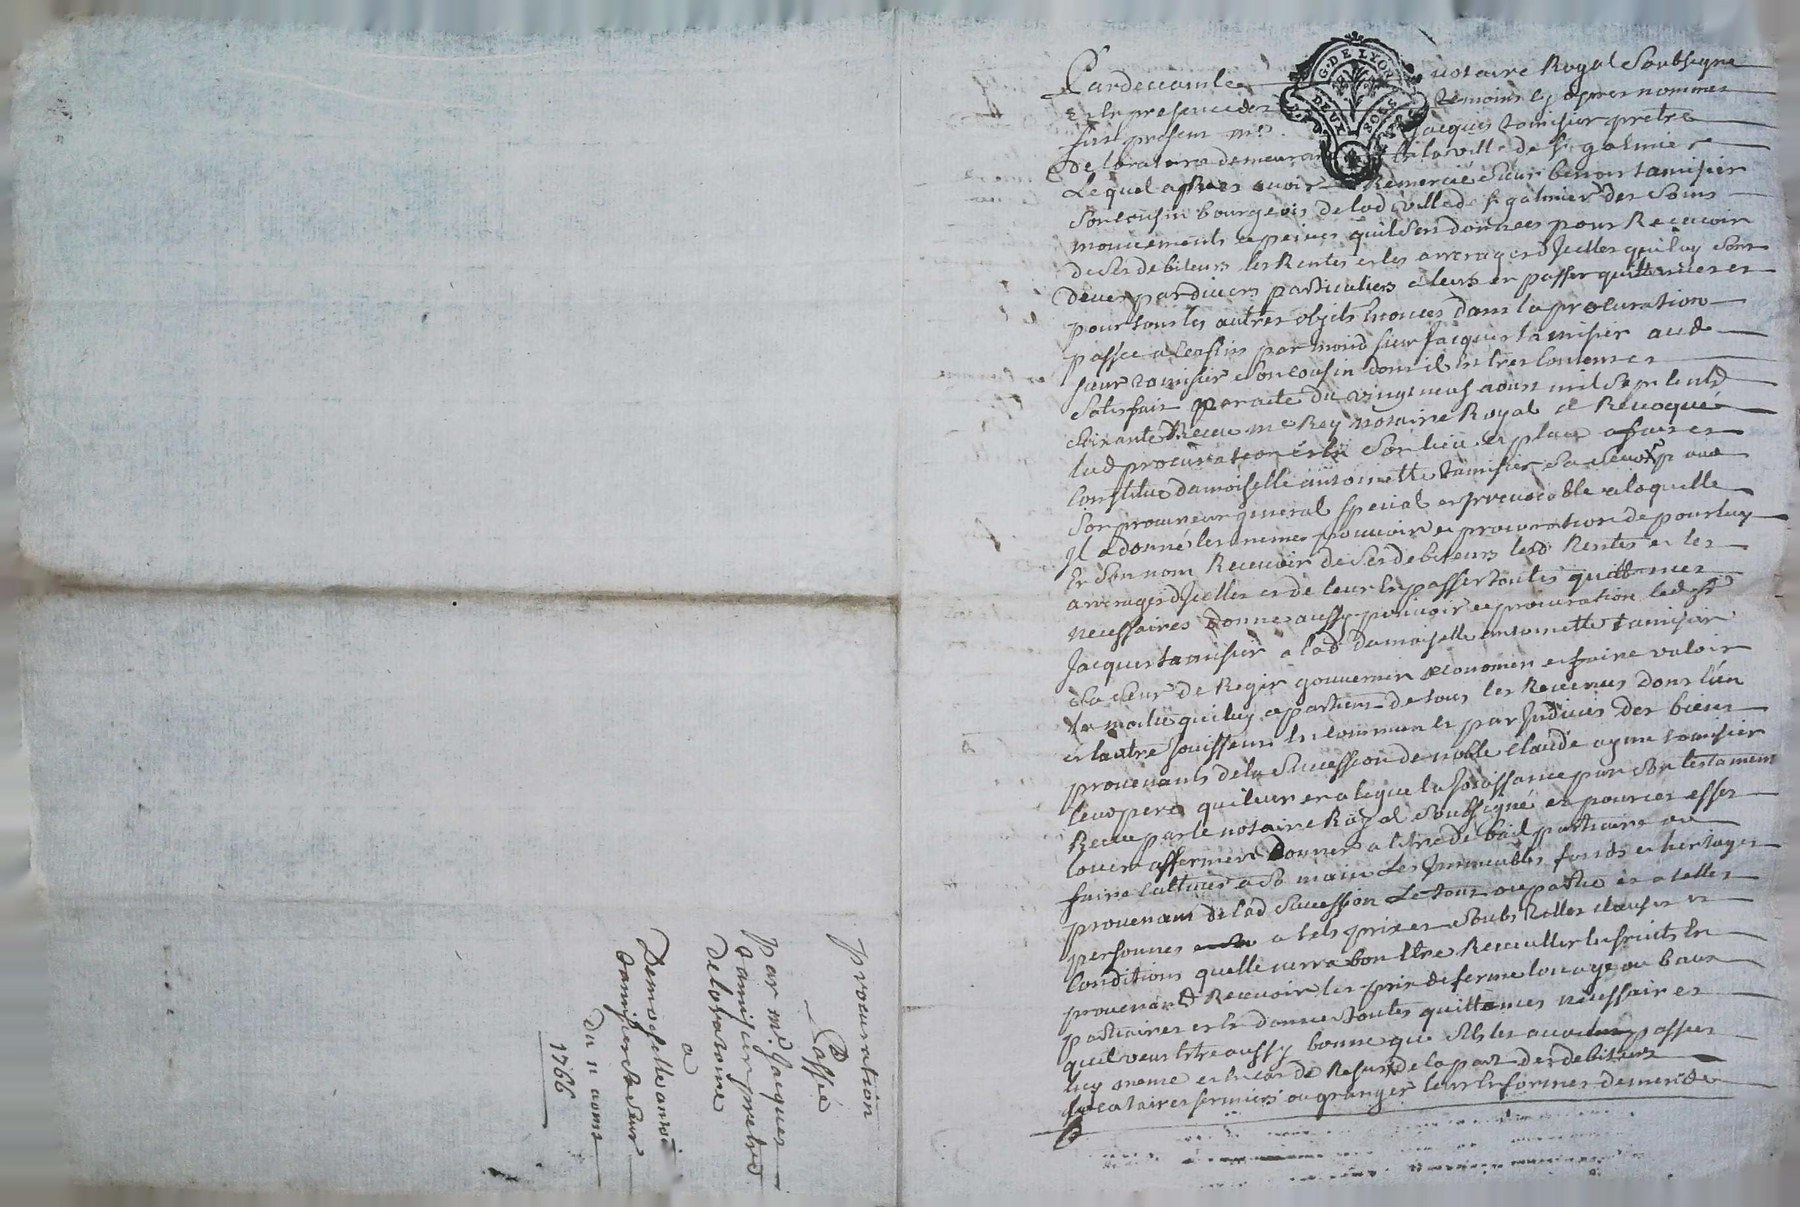 procuration
Passée
par mr. Jacques
tamisier pretre
de loratoire
a
Demoiselle antoi
tamisier sa seur
du 11 aoust
1766
G. DE LYON
DEUX SOLS
Pardevant le notaire Royal Soubsigné
Et en presence des temoins cy apres nommes
fut present mre. Jacques tamisier pretre
de loratoire demeurant en la ville de st galmier
Lequel apres avoir Remercié Sieur benoit tamisier
Son cousin bourgeois de lad ville de st galmier des Soins
mouvements et peines quil Sest donnees pour Recevoir
de Ses debiteurs les Rentes et les arrerages dJcelles qui luy Sont
deues par divers particuliers et leurs en passer quittances et
pour tous les autres objets enoncés dans la procuration
passée a cet fin par mond sieur Jacques tamisier aud
sieur tamisier Son cousin dont il est tres content et
Satisfait par acte du vingt neuf aoust mil Sept cents
Soixante Receu me Rey notaire Royal a Revoqué
lad procuration et en Son lieu et place a fait et
Constitué damoiselle antoinette tamisier Sa Seur p
Son procureur general Special et jrrevocable a laquelle
Jl a donné les memes pouvoir et procuration de pour luy
Et Son nom Recevoir de Ses debiteurs lesd Rentes et les
arrerages dJcelles et de leur En passer toutes quittances
necessaires donne aussy pouvoir et procuration led sr
Jacques tamisier a lad damoiselle antoinette tamisier
Sa seur de Regir gouverner œconomer et faire valoir
la moitie qui luy apartient de tous les Revenus dont l'un
et lautre Jouissent En commun et par Jndivis des biens
provenants de la Succession de noble claude ayme tamisier
leur pere qui leur en a legué la Jouissance par Son testament
Receu par le notaire Royal Soubsigné et pour cet effet
louer affermer donner a titre de bail partiaire ou
faire cultiver a Sa main Les Jmmeubles fonds et heritages
provenant de lad Succession Le tout ou partie et a telles
personnes a tels prix et Soubs telles clauses et
Conditions quelle verra bon Etre Recueillir les fruits En
provenant Recevoir les prix de ferme louage ou baux
partiaires et En donner toutes quittances necessaires
quil veut Etre aussy bonnes que Sil les avoit passees
luy meme et En cas de Refus de la part des debiteurs
locataires fermiers ou granger leurs En former demande